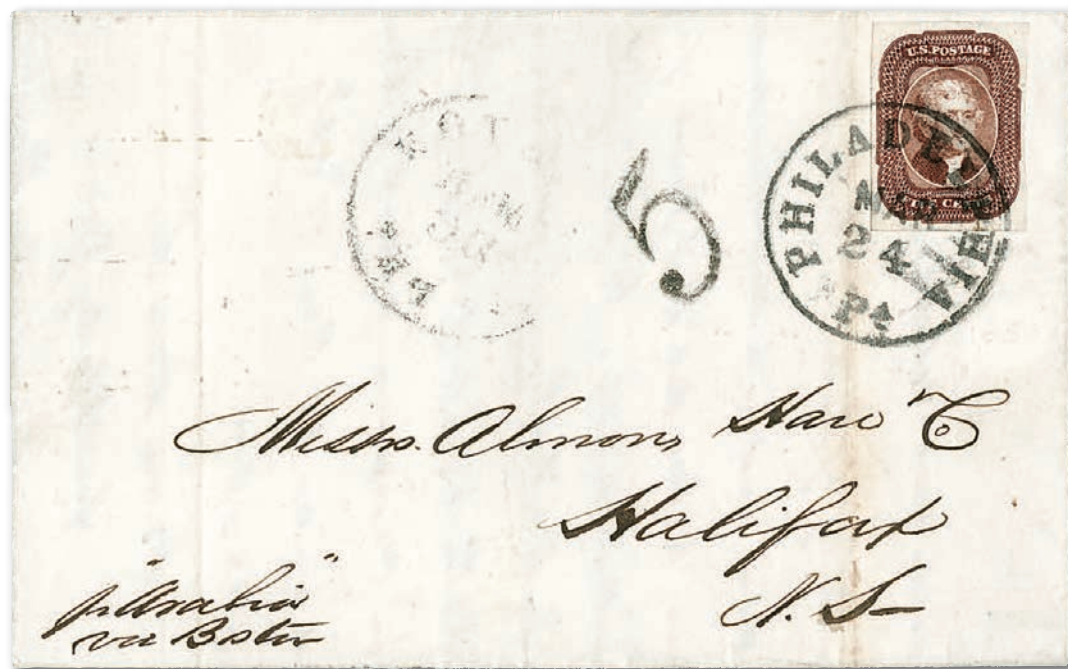 U.S. POSTAGE
PHILADELPHIA
MAR
24
Pa
5
Messrs. Almon, Hare & Co
Halifax
N. S
pr "Arabia"
via Boston